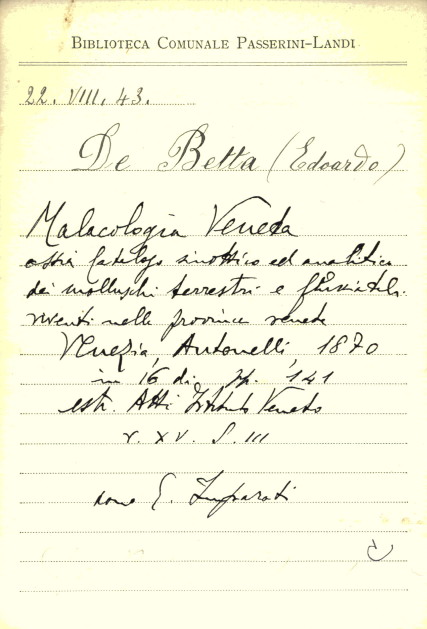 BIBLIOTECA COMUNALE PASSERINI-LANDI
22. VIII. 43.
De Betta (Edoardo)
Malacologia Veneta
ossia Catalogo sinottico ed analitico
dei molluschi terrestri e fluviatili
viventi nelle province venete
Venezia, Antonelli, 1870
in 16 di pp. 141
estr. Atti Istituto Veneto
v. XV. S. III
dono E. Imparati